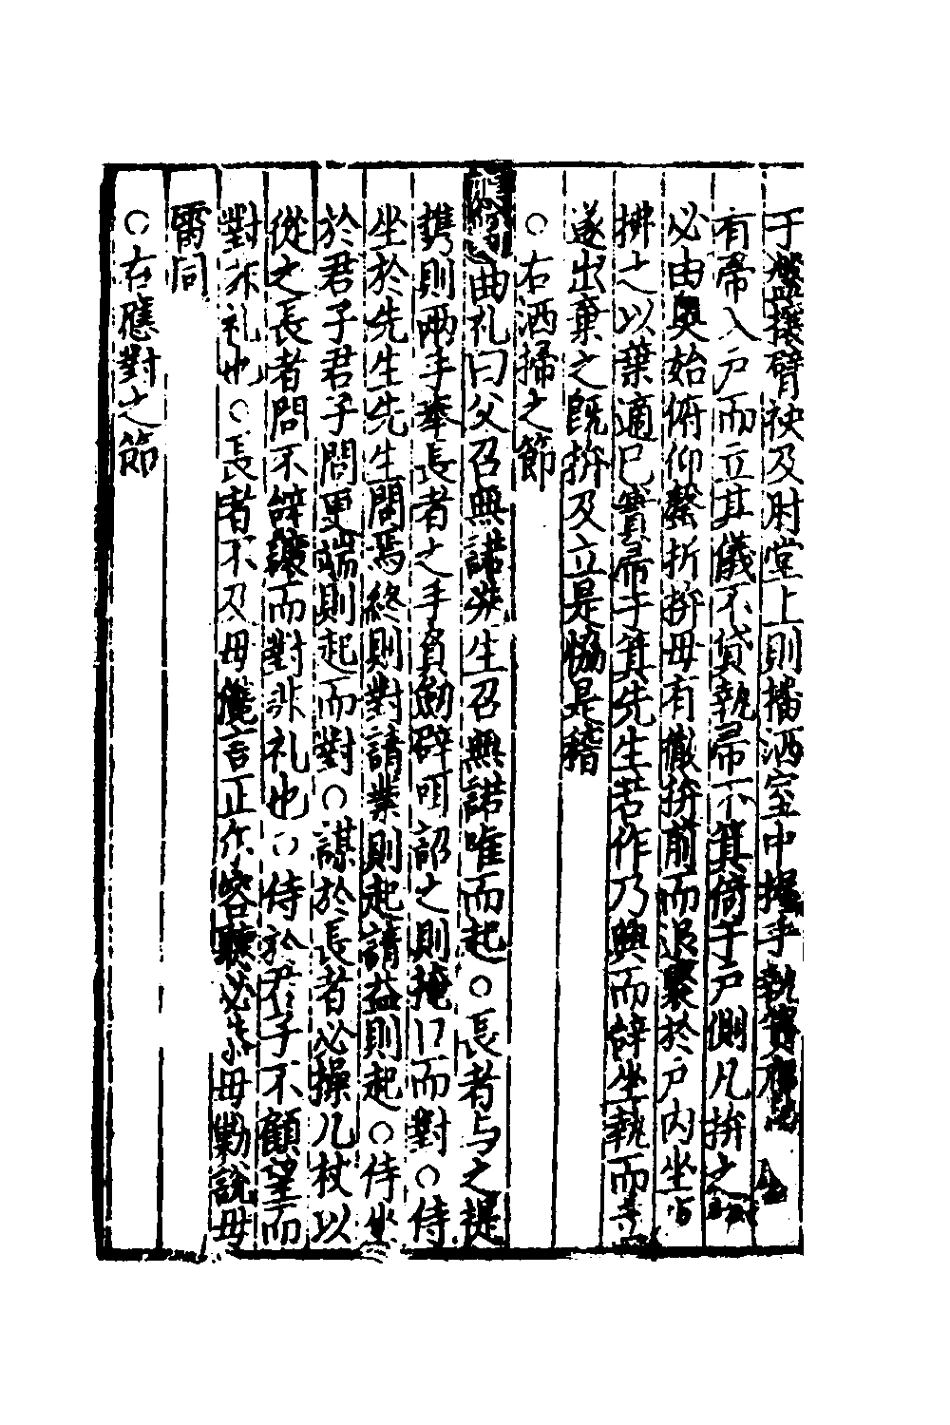 于盤攘臂袂及肘堂上則播洒室中握手執
有帚入户而立其儀不貸執帚下箕倚于户側凡拚之
必由奥始俯仰磬折拚毋有徹拚前而退聚於户内坐
拂之以葉適己實帚于箕先生若作乃興而辝坐執而
遂出棄之既拚及立是恊是稽
○右洒掃之節
曲礼曰父召無諾先生召無諾唯而起○長者与之提
携則兩手奉長者之手負劒辟咡詔之則掩口而對○侍
坐於先生先生問焉終則對請業則起請益則起○侍坐
於君子君子問更端則起而對○謀於長者必操几杖以
從之長者問不辝讓而對非礼也○侍於君子不顧望而
對非礼也○長者不及毋儳言正尔容聽必恭毋勦說毋
雷同
○右應對之節